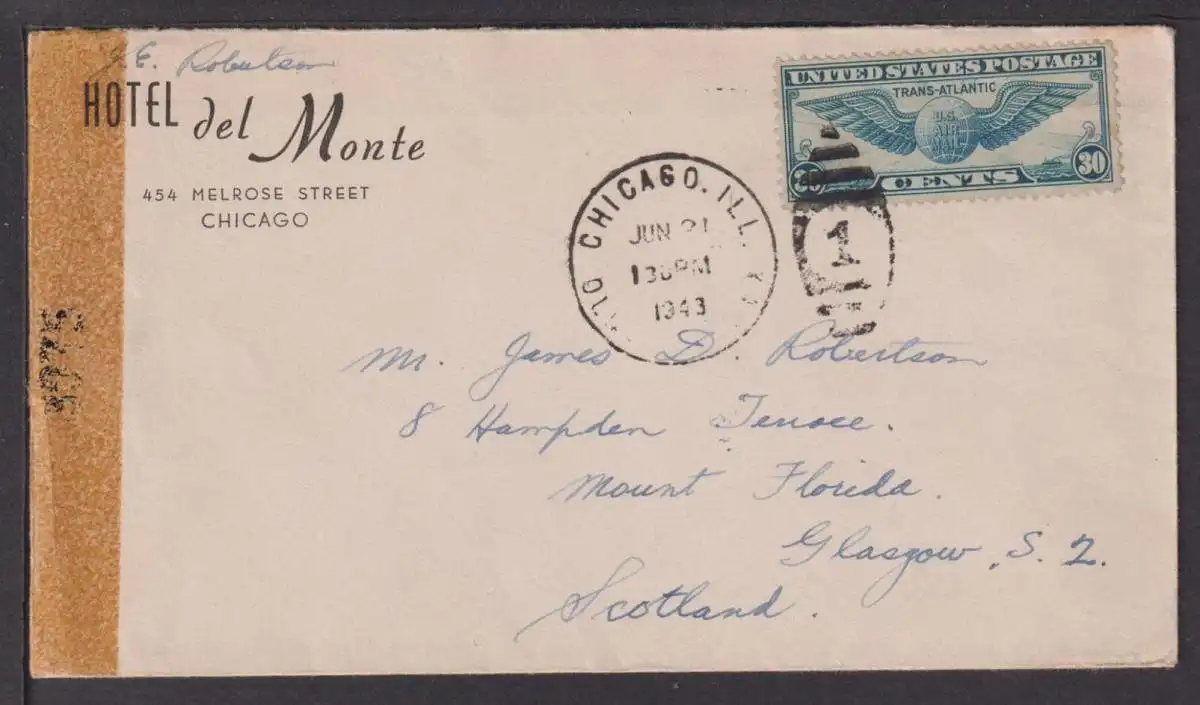 J.E. Robertson
HOTEL del Monte
454 MELROSE STREET
CHICAGO
UNITED STATES POSTAGE
TRANS-ATLANTIC
U.S.
AIR
MAIL
30 CENTS 30
CHICAGO, ILL.
JUN 21
130PM
1943
1
Mr. James D. Robertson
8 Hampden Terrace.
Mount Florida.
Glasgow, S. 2.
Scotland.